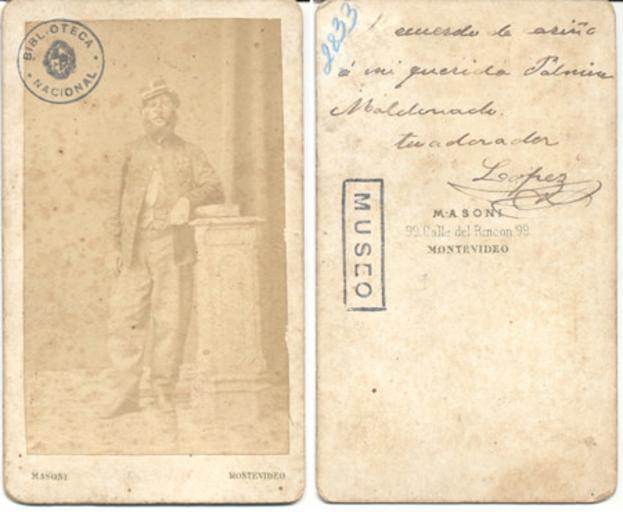 BIBLIOTECA
NACIONAL
MASONI
MONTEVIDEO
2833
á mi querida
Maldonado.
tu adorador
Lopez
MUSEO
MASONI
99. Calle del Rincon 99
MONTEVIDEO